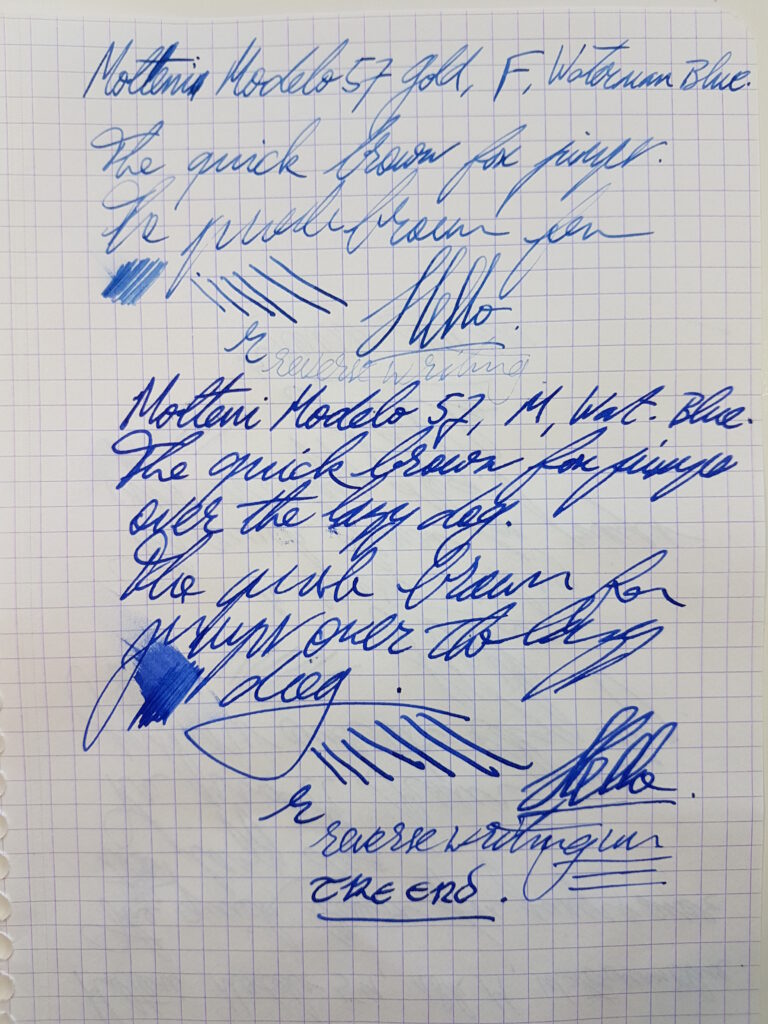 Molteni Modelo 57 Gold, F, Waterman Blue.
The quick brown fox jumps.
The quick brown fox
Hello.
r
reverse writing
Molteni Modelo 57, M, Wat. Blue.
The quick brown fox jumps
over the lazy dog.
The quick brown fox
jumps over the lazy
dog.
Hello.
r
reverse writing
THE END.